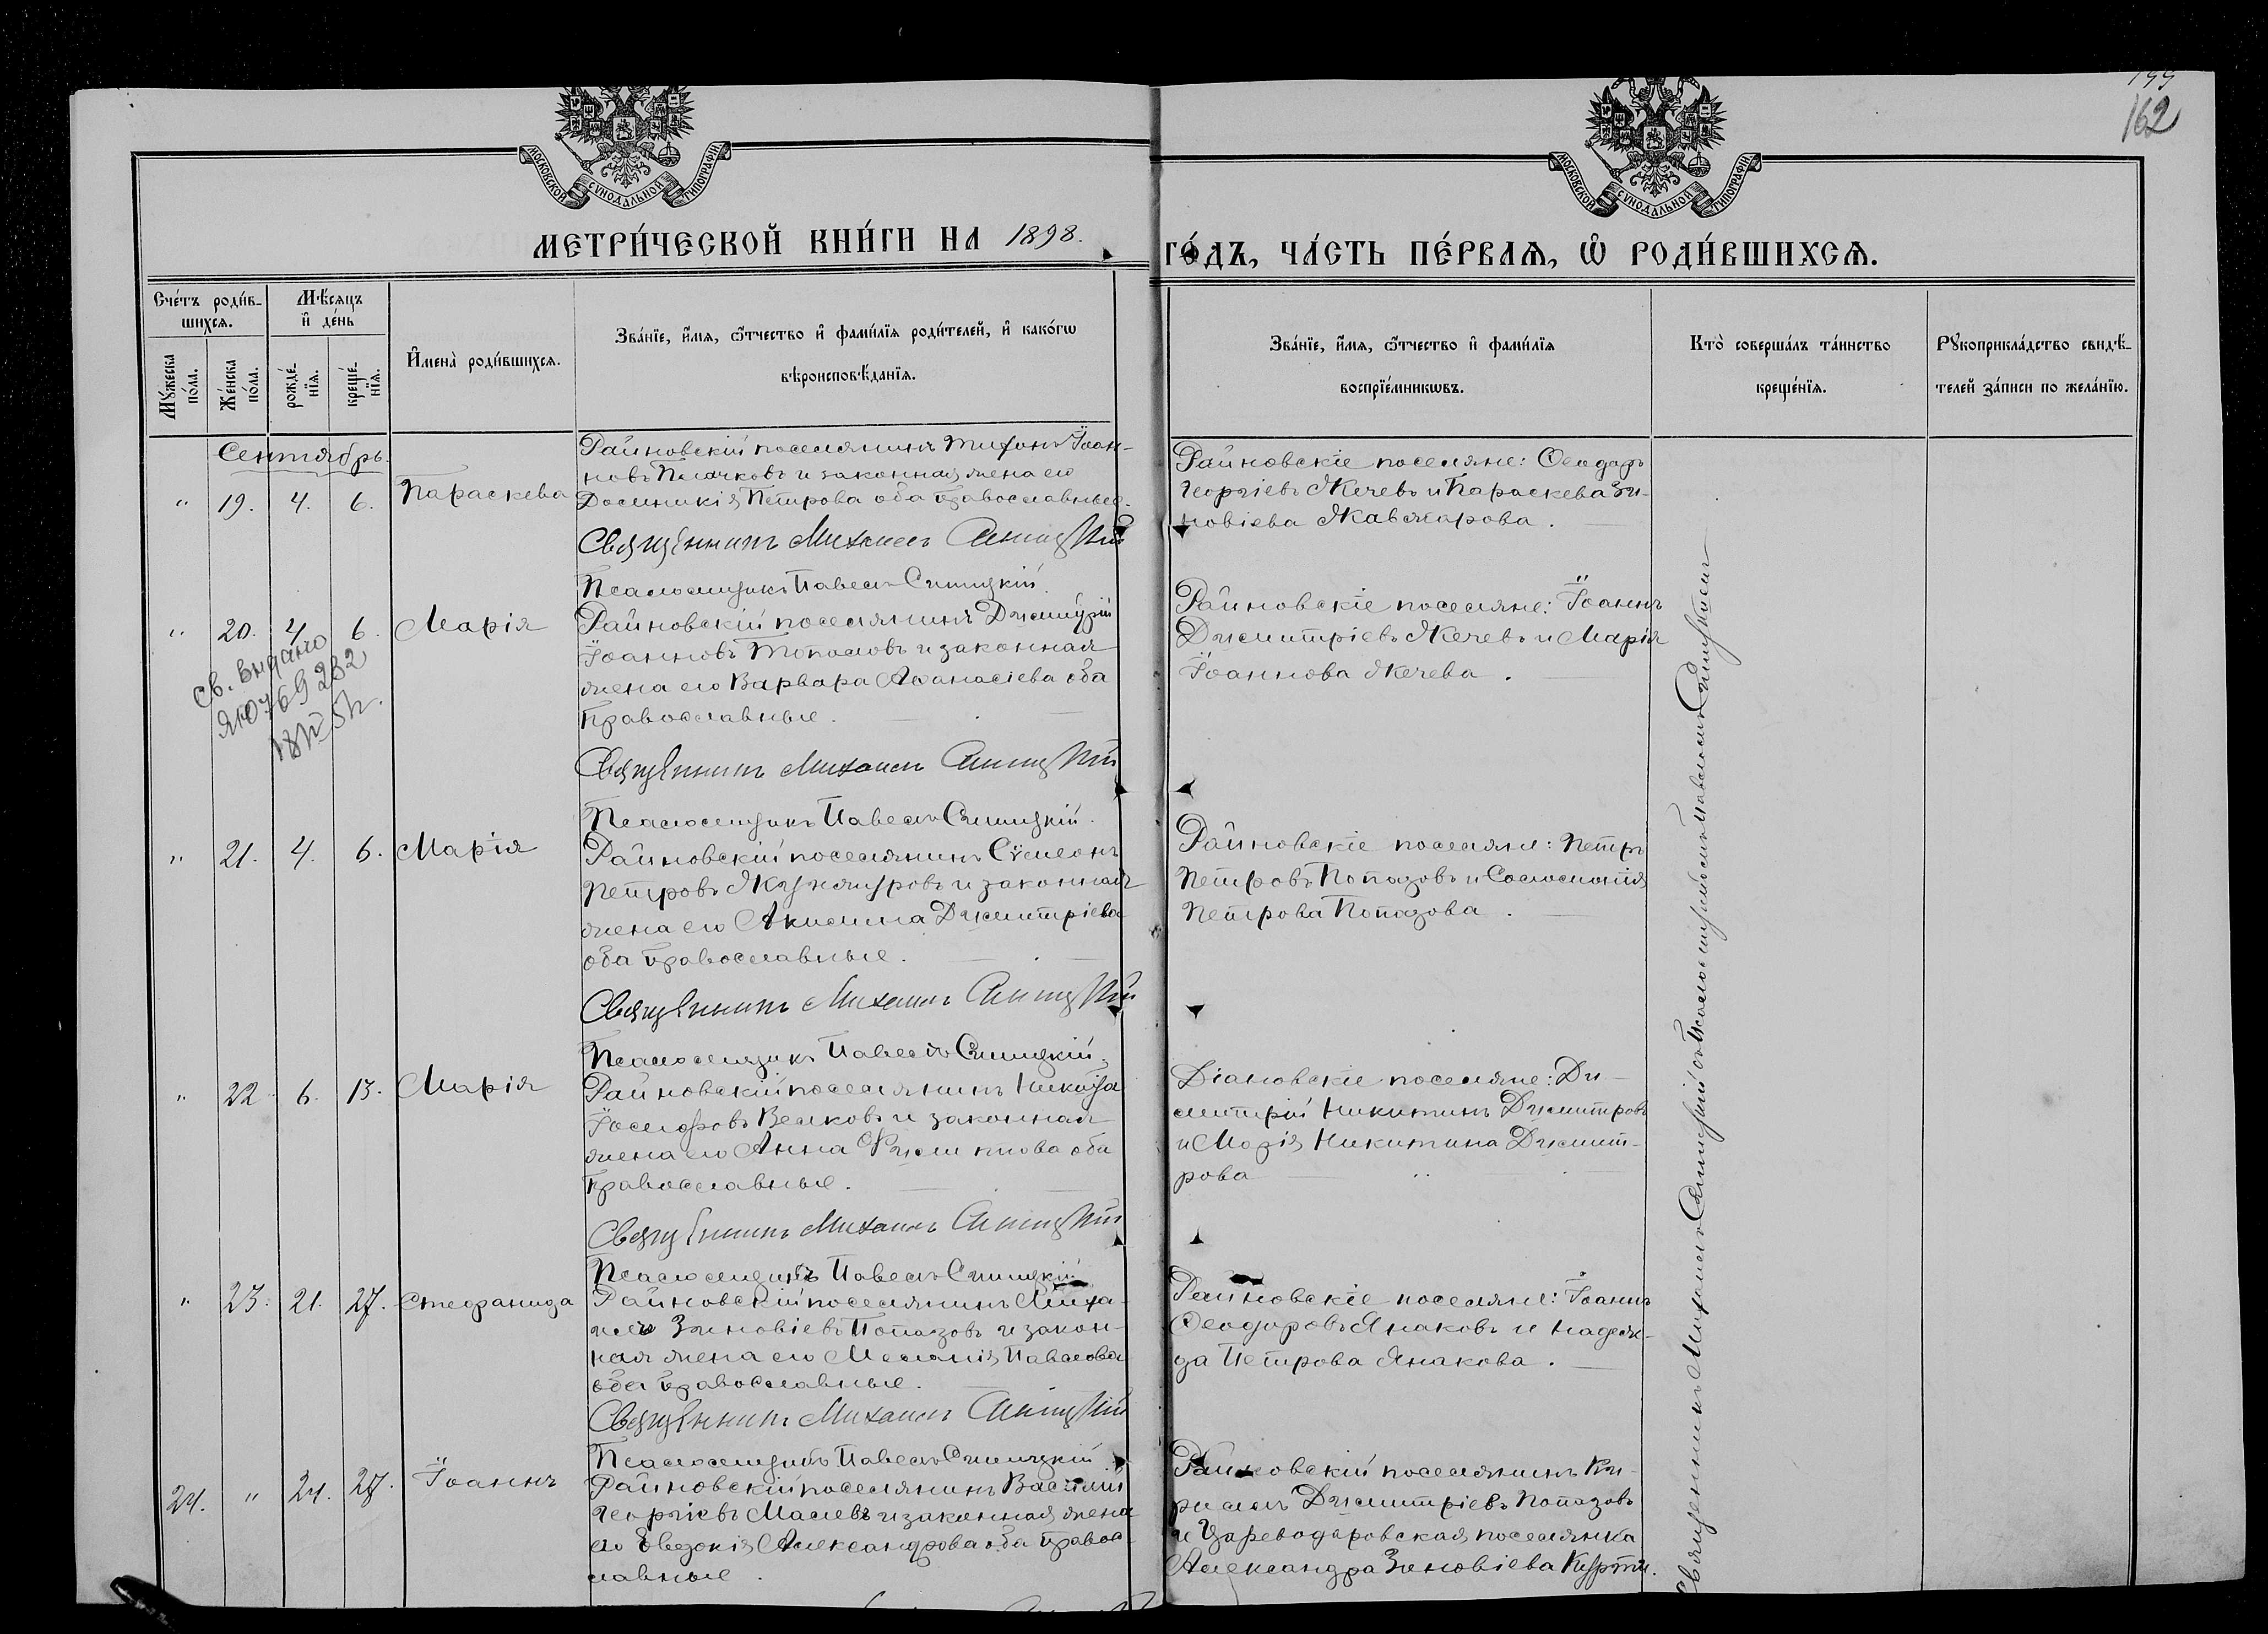 199
162
МОСКОВСКОЙ СѴНОДАЛЬНОЙ ТИПОГРАФІИ
МОСКОВСКОЙ СѴНОДАЛЬНОЙ ТИПОГРАФІИ
МЕТРИ́ЧЕСКОЙ КНИ́ГИ НА 1898.
ГО́ДЪ, ЧА́СТЬ ПЕ́РВАѦ, Ѡ҆ РОДИ́ВШИХСѦ.
Сче́тъ роди́в-
шихсѧ.
Мꙋ́жеска по́ла.
Же́нска по́ла.
Мѣ́сѧцъ
и҆ де́нь
рожде́-
нїѧ.
креще́-
нїѧ.
И҆мена̀ роди́вшихсѧ.
Зва́нїе, и҆́мѧ, ѻ҆́тчество и҆ фами́лїѧ роди́телей, и҆ како́гѡ
вѣроисповѣ́данїѧ.
Зва́нїе, и҆́мѧ, ѻ҆́тчество и҆ фами́лїѧ
воспрїе́мникѡвъ.
Кто̀ соверша́лъ та́инство
креще́нїѧ.
Рꙋкоприкла́дство свидѣ́-
телей за́писи по жела́нїю.
Сентябрь.
" 19. 4. 6. Параскева
Райновскій поселянинъ Тифонъ Іоан-
новъ Плачковъ и законная жена его
Домникія Петрова оба православные.
Священникъ Михаилъ Синицкій
Псаломщикъ Павелъ Синицкій.
Райновскіе поселяне: Ѳеодоръ
Георгіевъ Жечевъ и Параскева Зи-
новіева Жавжарова.
" 20. 4. 6. Марія
Св. выдано
ЯЮ769282
Райновскій поселянинъ Димитрій
Іоанновъ Тополовъ и законная
жена его Варвара Аѳанасіева оба
православные.
Священникъ Михаилъ Синицкій
Псаломщикъ Павелъ Синицкій.
Райновскіе поселяне: Іоаннъ
Димитріевъ Жечевъ и Марія
Іоаннова Жечева.
" 21. 4. 6. Марія
Райновскій поселянинъ Сѵмеонъ
Петровъ и законная
жена его Акилина Димитріева
оба православные.
Священникъ Михаилъ Синицкій
Псаломщикъ Павелъ Синицкій.
Райновскіе поселяне: Петръ
Петровъ Попазовъ и Соломонія
Петрова Попазова.
" 22. 6. 13. Марія
Райновскій поселянинъ Никита
Іосифовъ Велковъ и законная
жена его Анна Филиппова оба
православные.
Священникъ Михаилъ Синицкій
Псаломщикъ Павелъ Синицкій
Діановскіе поселяне: Ди-
митрій Никитинъ Димитровъ
и Марія Никитина Димит-
рова
" 23. 21. 27. Стефанида
Райновскій поселянинъ Миха-
илъ Зиновіевъ Попазовъ и закон-
ная жена его Меланія Павлова
оба православные.
Священникъ Михаилъ Синицкій
Псаломщикъ Павелъ Синицкій
Райновскіе поселяне: Іоаннъ
Ѳеодоровъ Янаковъ и Надеж-
да Петрова Янакова.
24. " 24. 27. Іоаннъ
Райновскій поселянинъ Василій
Георгіевъ Малевъ и законная жена
его Евдокія Александрова оба право-
славные.
Райновскій поселянинъ Ки-
риллъ Димитріевъ Попазовъ
и Цареводаровская поселянка
Александра Зиновіева Курти.
Священникъ Михаилъ Синицкій съ Псаломщикомъ Павломъ Синицкимъ